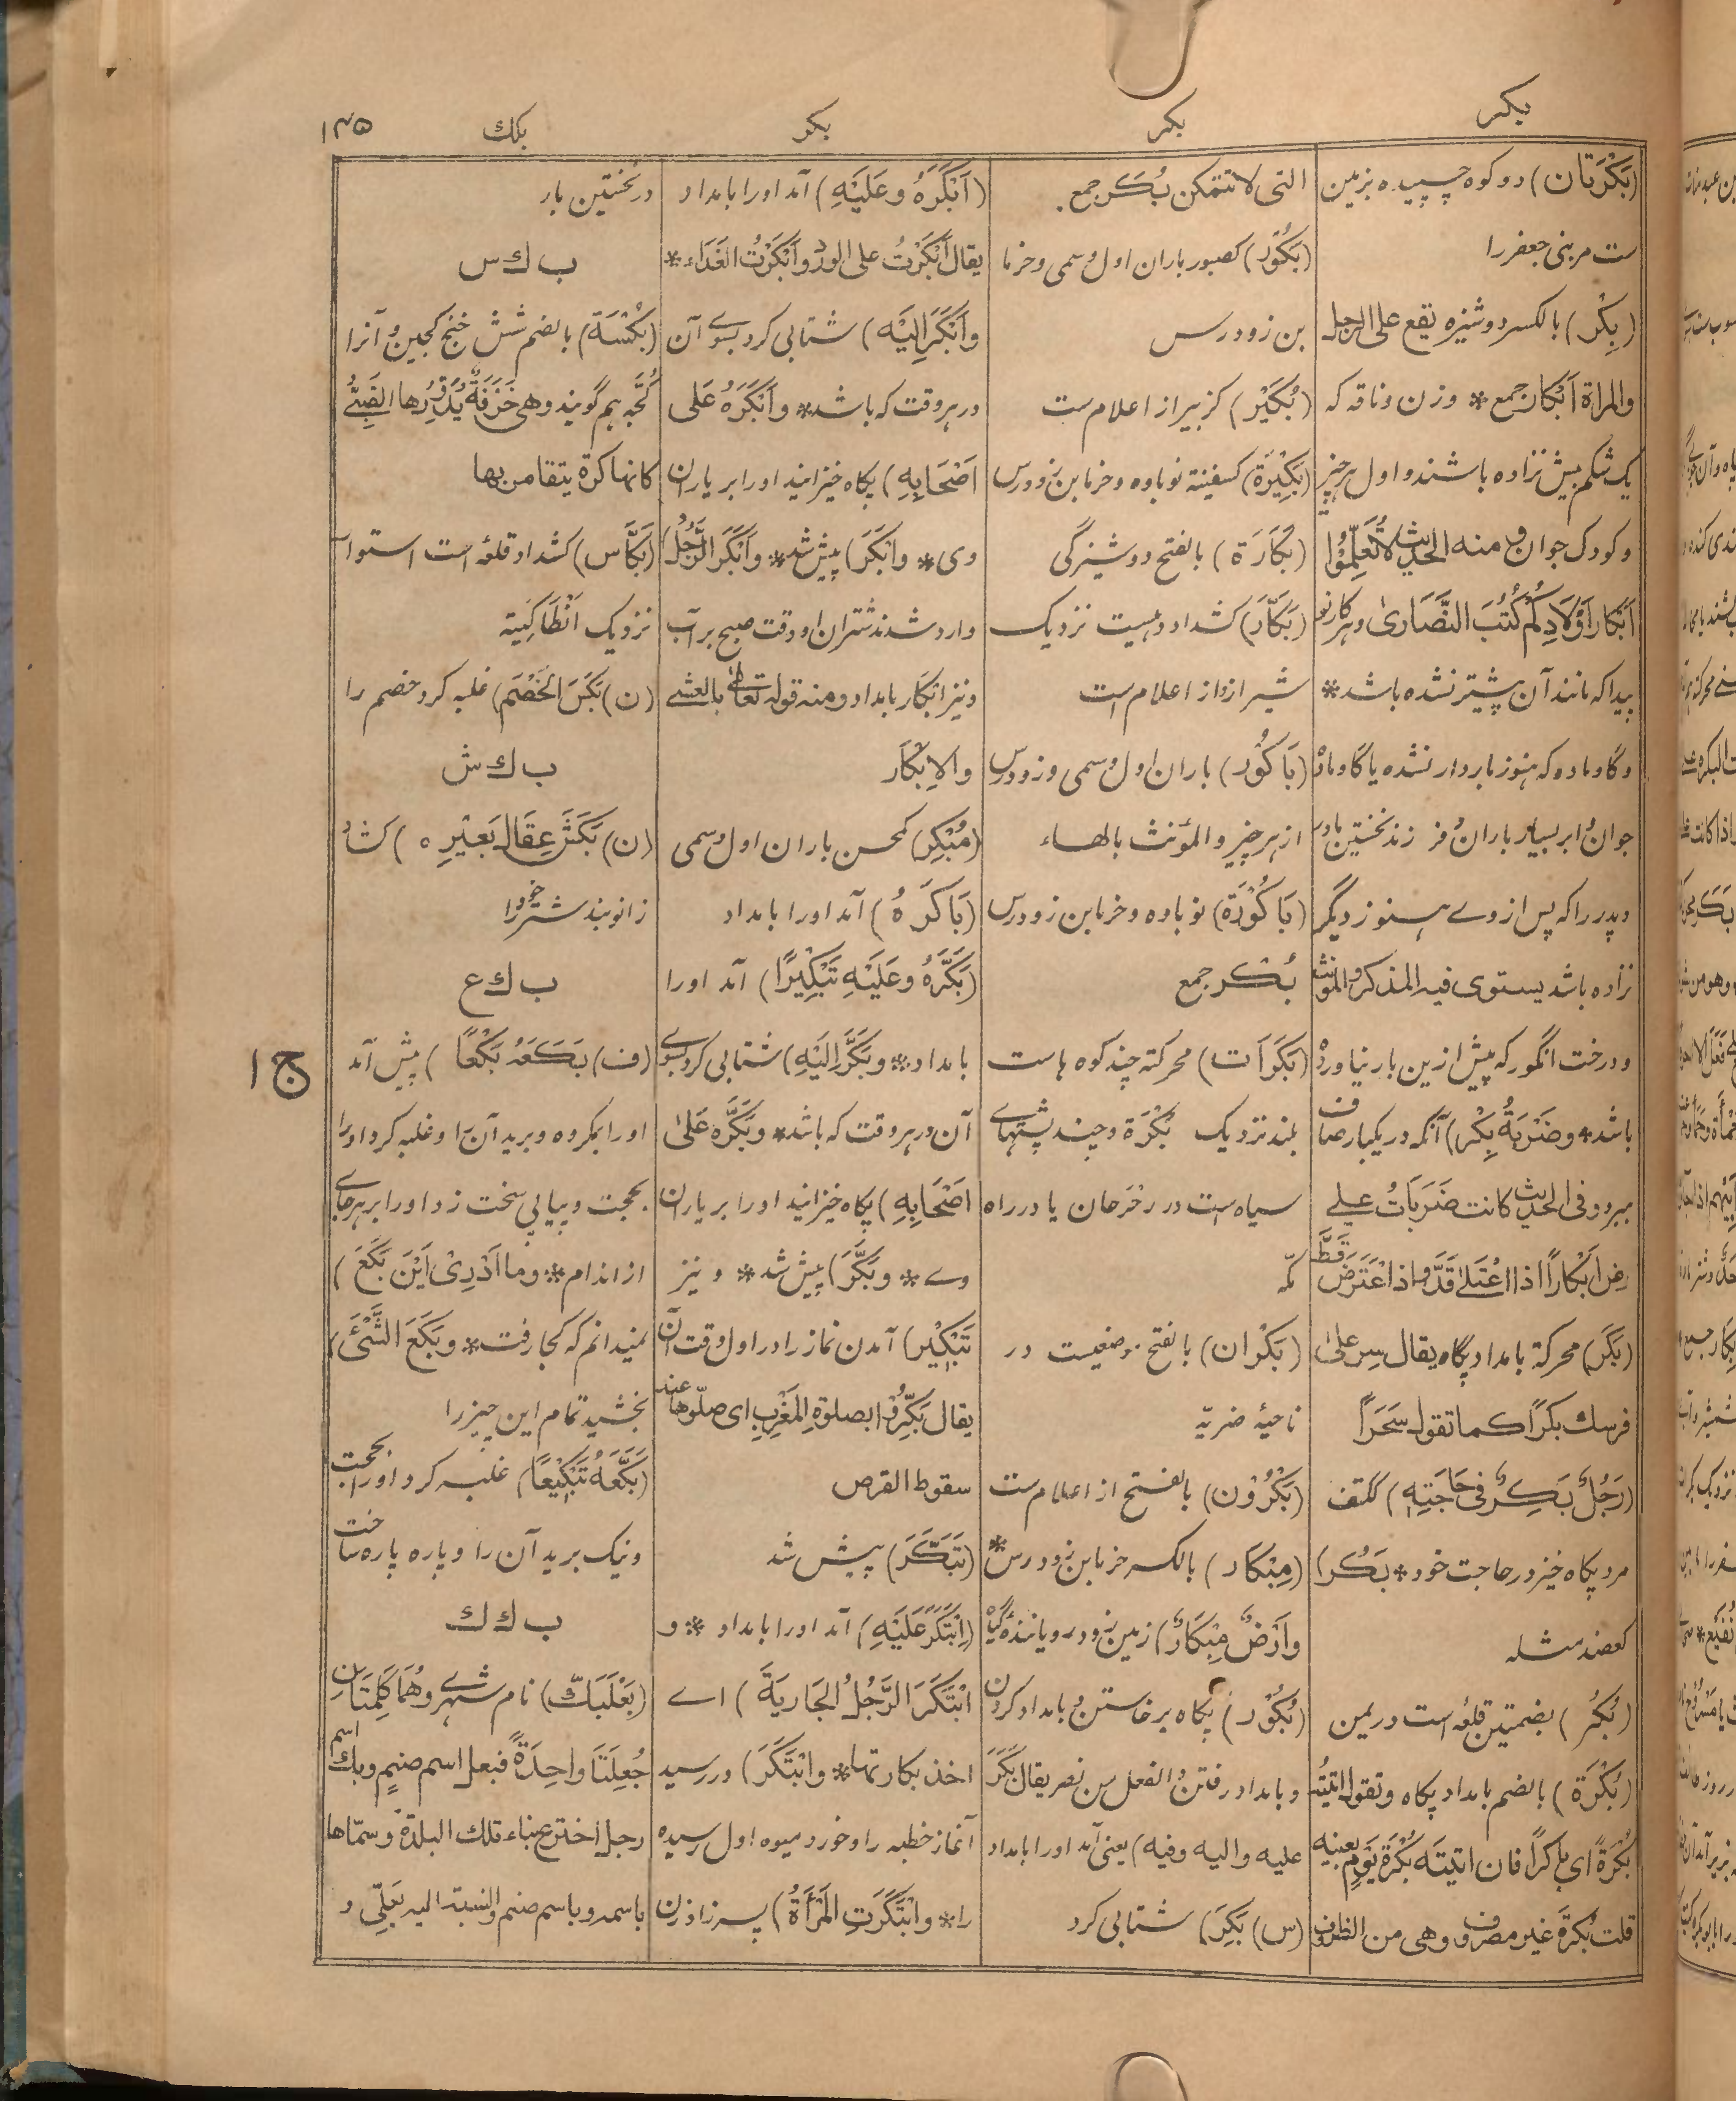 بکر
بکر
بکر
بکك
۱۴۵
(بَکْرَتان) دو کوه چسپیده بزمین
ست مر بنی جعفر را
(بِکْر) بالکسر دوشیزه یقع علی الرجل
والمراة اَبْکار جمع * و زن و ناقه که
یک شکم بیش نزاده باشند و اول هر چیز
و کودک جوان و منه الحدیث لا تُعَلِّمُوا
اَبْکارَ اَوْلَادِکُمْ کُتُبَ النَّصَارىٰ و هر کار نو
پیدا که مانند آن پیشتر نشده باشد *
و گاو ماده که هنوز باردار نشده یا گاو ماده
جوان و ابر بسیار باران و فرزند نخستین مادر
و پدر را که پس از وے هنوز دیگر
نزاده باشد یستوی فیه المذکر و المونث
و درخت انگور که پیش ازین بار نیاورده
باشد * و ضَرْبَةٌ بِکْر) آنکه در یکبار صاف
ببرد و فی الحدیث کانت ضَرَبَاتُ علے
رض اَبْکارًا اذا اعْتَلىٰ قَدَّ و اذا اعْتَرَضَ قَطَّ
(بَکَر) محرکة بامداد پگاه یقال سِر علیٰ
فرسك بکرًا کما تقول سَحَرًا
(رَجُلٌ بَکِرٌ فی حَاجَتِهِ) ککتف
مرد پگاه خیز در حاجت خود * بَکُر)
کعضد مثله
(بُکُر) بضمتین قلعه است در یمن
(بُکْرَة) بالضم بامداد پگاه و تقول اتیتُه
بُکْرَةً ای باکرًا فان اتیتَه بُکْرَةَ یَوْمٍ بعینه
قلت بُکْرَةَ غیر مصروف و هی من الظروف
التی لا تتمکن بُکَر جمع .
(بَکُوْر) کصبور باران اول وسمی و خرما
بن زودرس
(بُکَیْر) کزبیر از اعلام ست
(بَکِیْرَة) کسفینة نوباوه و خرما بن زودرس
(بَکَارَة) بالفتح دوشیزگی
(بَکَّار) کشداد دهیست نزدیک
شیراز و از اعلام است
(بَاکُوْر) باران اول وسمی و زودرس
از هر چیز و المؤنث بالهاء
(بَاکُوْرَة) نوباوه و خرما بن زودرس
بُکْر جمع
(بَکَرَات) محرکة چند کوه هاست
بلند نزدیک بُکْرَة و چند پشتهاے
سیاه است در رَخْرَحان یا در راه
مکّه
(بَکْران) بالفتح موضعیست در
ناحیۀ ضریّه
(بَکْرُوْن) بالفتح از اعلام ست
(مِبْکَار) بالکسر خرما بن زودرس *
و اَرْضٌ مِبْکَارٌ) زمین زود رویانندۀ گیاه
(بُکُوْر) پگاه برخاستن و بامداد کردن
و بامداد رفتن و الفعل من نصر یقال بَکَرَ
علیه و الیه و فیه) یعنی آمد او را بامداد
(س) بَکِرَ) شتابی کرد
(اَبْکَرَهُ و عَلَیْهِ) آمد او را بامداد
یقال اَبْکَرْتُ علی الورد و اَبْکَرْتُ الغَدَاء *
و اَبْکَرَ اِلَیْهِ) شتابی کرد بسوے آن
در هر وقت که باشد * و اَبْکَرَهُ عَلی
اَصْحَابِهِ) پگاه خیزانید او را بر یاران
وی * و اَبْکَرَ) پیش شد * و اَبْکَرَ الرَّجُلُ)
وارد شدند شتران او وقت صبح بر آب
و نیز اِبْکَار بامداد و منه قوله تعالیٰ بالعشے
والاِبْکَار
(مُبْکِر) کمحسن باران اول وسمی
(بَاکَرَهُ) آمد او را بامداد
(بَکَّرَهُ و عَلَیْهِ تَبْکِیْرًا) آمد او را
بامداد * و بَکَّرَ اِلَیْهِ) شتابی کرد بسوے
آن در هر وقت که باشد * و بَکَّرَه عَلیٰ
اَصْحَابِهِ) پگاه خیزانید او را بر یاران
وے * و بَکَّرَ) پیش شد * و نیز
تَبْکِیْر) آمدن نماز را در اول وقت آن
یقال بَکِّرُوْا بصلوةِ المَغْرِبِ ای صلّوها عند
سقوط القرص
(تَبَکَّرَ) پیش شد
(اِبْتَکَرَ عَلَیْهِ) آمد او را بامداد * و
ابْتَکَرَ الرَّجُلُ الجَارِیَةَ) اے
اخذ بکارتها * و ابْتَکَرَ) در رسید
آغاز خطبه را و خورد میوه اول رسیده
را * و ابْتَکَرَتِ المَرْأَةُ) پسر زاد زن
در نخستین بار
ب ك س
(بُکْسَة) بالضم شش خنج کجین و آنرا
کُجَّه هم گویند و هی خَزَفَةٌ یُدَوِّرُها الصِّبْیُ
کانها کرة یتقامرن بها
(بَکَّاس) کشداد قلعه است استوار
نزدیک اَنْطَاکِیَة
(ن) بَکَسَ الخَصْمَ) غلبه کرد خصم را
ب ك ش
(ن) بَکَشَ عِقَالَ بَعِیْرِهِ) کشاد
زانوبند شتر خود را
ب ك ع
(ف) بَکَعَهُ بَکْعًا) پیش آمد
او را بمکروه و برید آن را و غلبه کرد او را
بحجت و بیاپی سخت زد او را بر هر جاے
از اندام * و ما اَدْرِیْ اَیْنَ بَکَعَ)
نمیدانم که کجا رفت * و بَکَعَ الشَّیْئَ)
بخشید تمام این چیز را
(بَکَّعَهُ تَبْکِیْعًا) غلبه کرد او را بحجت
و نیک برید آن را و پاره پاره ساخت
ب ك ك
(بَعْلَبَكّ) نام شهرے و هُمَا کَلِمَتَانِ
جُعِلَتَا واحِدَةً فبعل اسم صنمٍ و بك اسم
رجل اخترع بناء تلك البلدة و سمّاها
باسمه و باسم صنم و النسبة الیه بَعْلِیّ و
ج ۱